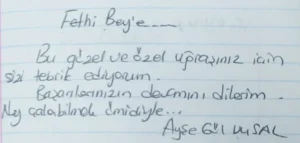 Fethi Bey'e......
Bu güzel ve özel uğraşınız için
sizi tebrik ediyorum.
Başarılarınızın devamını dilerim.
Ney çalabilmek ümidiyle...
Ayşe GÜL UYSAL